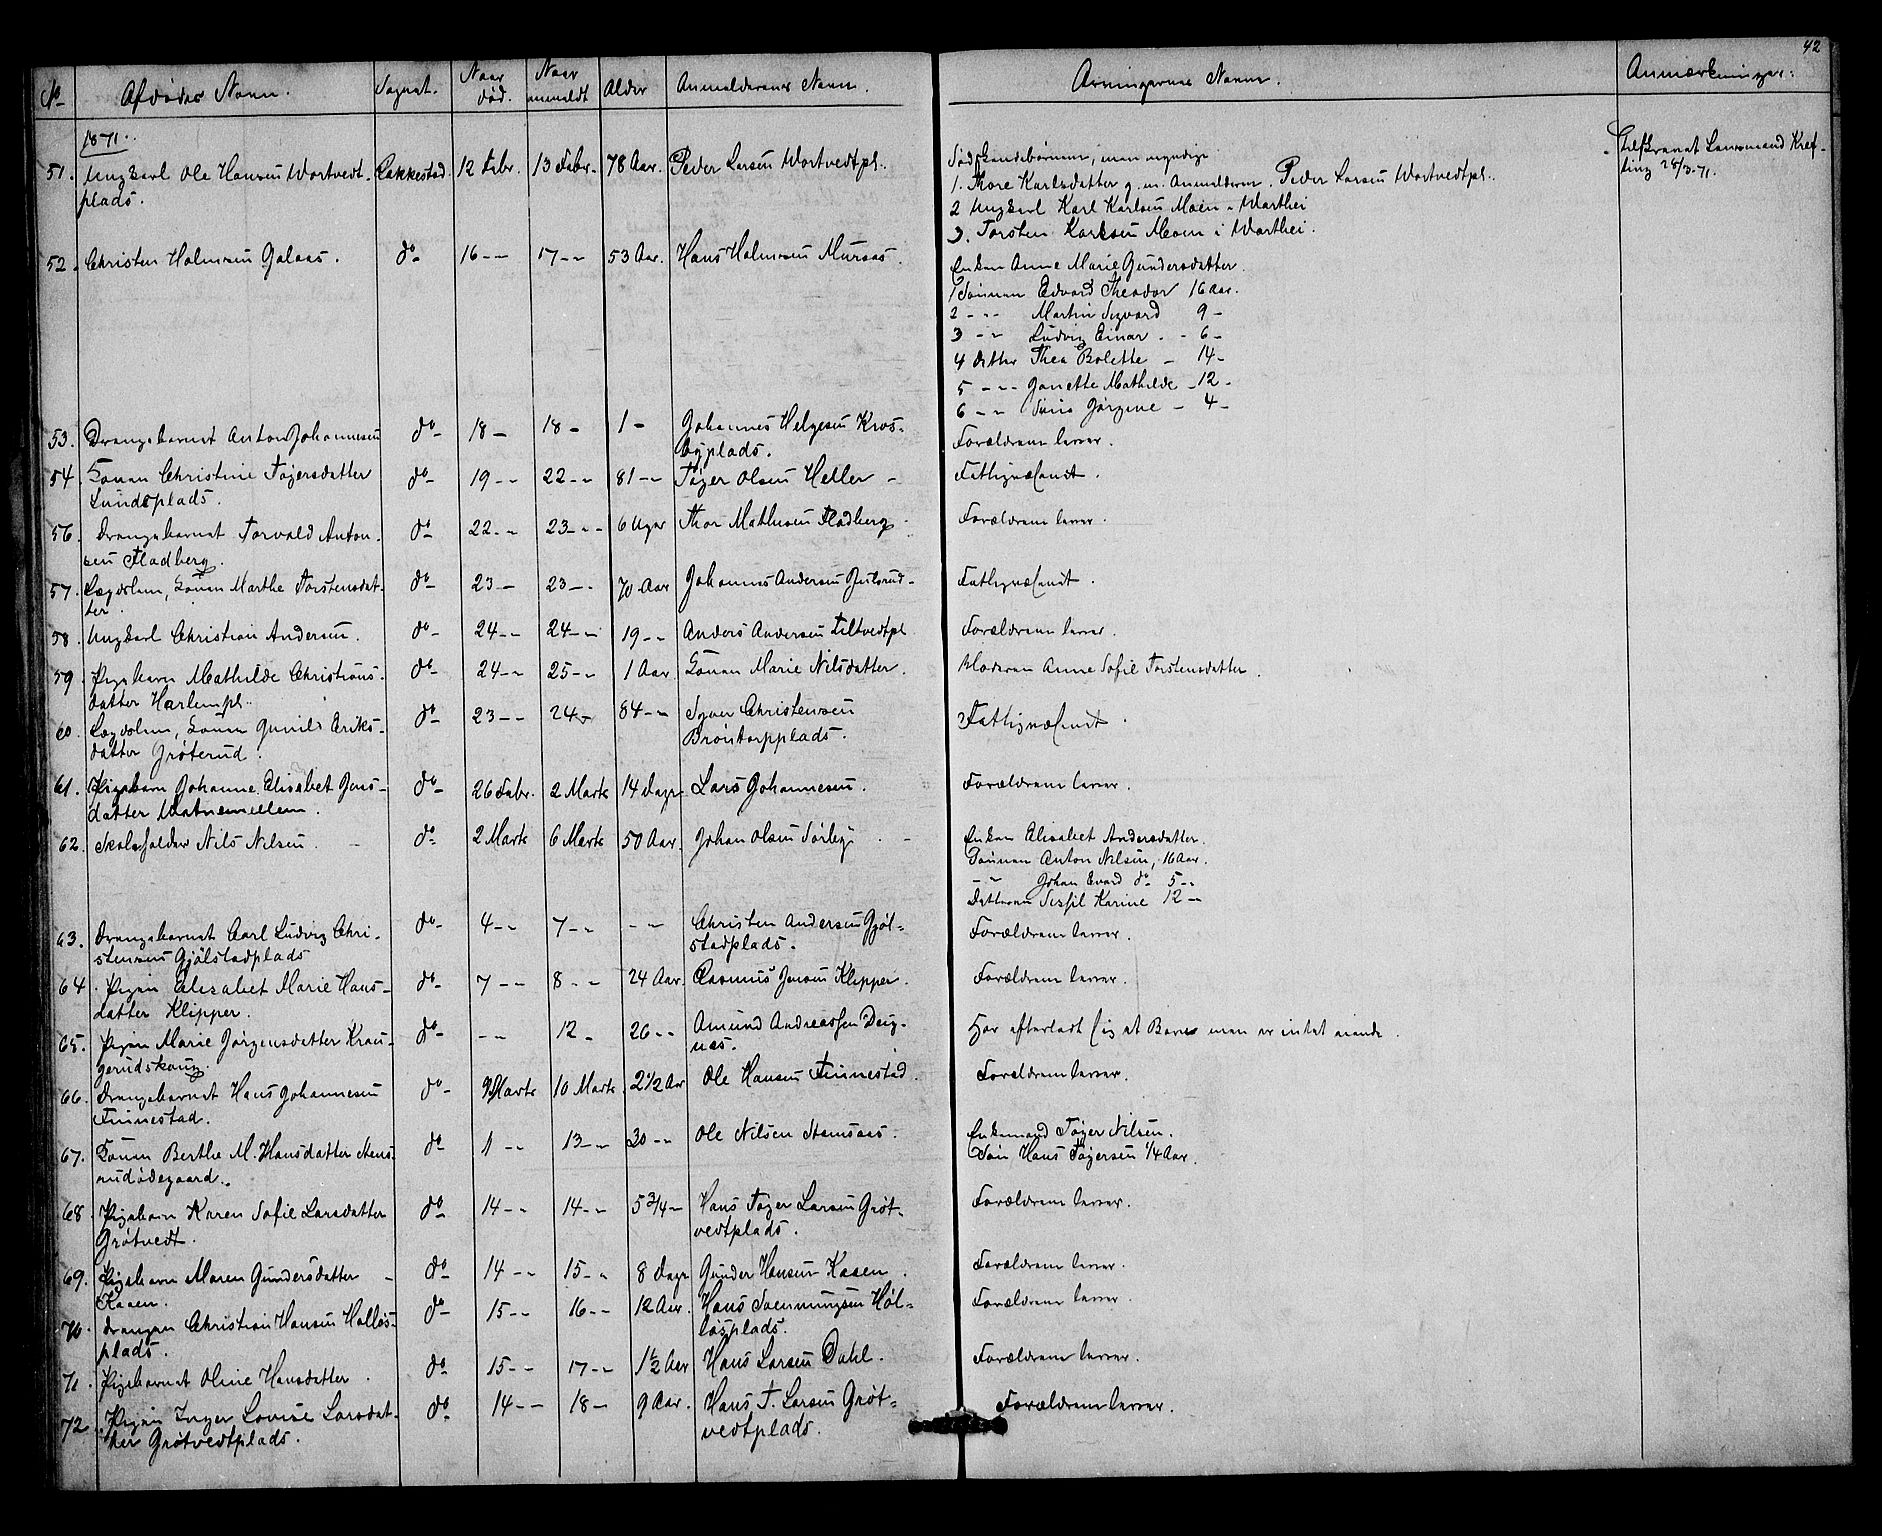 42
No Afdødes Navn. Sognet. Naar død. Naar anmeldt Alder Anmelderens Navn. Arvingernes Navne. Anmærkninger.
1871.
51. Ungkarl Ole Hansen Wortvedt- Rakkestad. 12 Febr. 13 Febr. 78 Aar. Peder Larsen Wortvedtpl.
plads.
Sødskendebørnene, men myndige
1. Thore Karlsdatter g. m. Anmelderen, Peder Larsen Wortvedtpl.
2 Ungkarl Karl Karlsen Moen i Warthei
3. Torsten Karlsen Moen i Warthei.
Lensmand Kref-
ting 28/3.71.
52. Christen Halvorsen Galaas. do 16 -- 17 -- 53 Aar. Hans Halvorsen Muraas.
Enken Anne Marie Gundersdatter.
1 Sønnen Edvard Theodor 16 Aar.
2 -- Martin Sigvard 9 -
3 -- Ludvig Einar - 6 -
4 Datter Thea Bolette - 14 -
5 -- Janette Mathilde - 12 -
6 -- Jørgine - 4 -
53. Drengebarnet Anton Johannesen do 18 - 18 - 1 - Johannes Helgesen Kros-
byplads.
Forældrene lever.
54. Konen Christine Tøgersdatter do 19 -- 22 -- 81 -- Tøger Olsen Heller -
Lundsplads.
Fattigvæsenet.
56. Drengebarnet Torvald Anton- do 22 -- 23 -- 6 Uger Thor Mathisen Fladberg.
sen Fladberg.
Forældrene lever.
57. Lægdslem, Konen Marthe Torstensdat- do 23 - 23 -- 70 Aar Johannes Andersen
ter.
Fattigvæsenet.
58. Ungkarl Christian Andersen. do 24 -- 24 -- 19 -- Anders Andersen Tiltvedtpl.
Forældrene lever.
59. Pigebarn Mathilde Christians- do 24 -- 25 -- 1 Aar Konen Marie Nilsdatter.
datter Harlempl.
Moderen Anne Sofie Torstensdatter.
60. Lægdslem, Konen Gunild Eriks- do 23 -- 24 - 84 -- Syver Christensen
datter Grøterud. Brøntorpplads.
Fattigvæsenet.
61. Pigebarn Johanne Elisabet Jens- do 26 Febr. 2 Marts 14 Dage Lars Johannesen.
datter
Forældrene lever.
62. Skoleholder Nils Nilsen. do 2 Marts 6 Marts 50 Aar. Johan Olsen Sørby
Enken Elisabet Andersdatter.
Sønnen Anton Nilsen, 16 Aar.
-- Johan Evard do 5 --
Datteren Karine 12 --
63. Drengebarnet Carl Ludvig Chri- do 4 -- 7 -- -- Christen Andersen Gjøl-
stensen Gjølstadplads stadplads.
Forældrene lever.
64. Pigen Elisabet Marie Hans- do 7 -- 8 -- 24 Aar. Rasmus Jensen Klipper.
datter Klipper.
Forældrene lever.
65. Pigen Marie Jørgensdatter Krau- do -- 12 - 26 -- Amund Andreassen Deig-
gerudskoug. næs.
Har efterladt sig et Barn men er intet eiende.
66. Drengebarnet Hans Johannesen do 9 Marts 10 Marts. 2 1/2 Aar Ole Hansen Finnestad.
Finnestad.
Forældrene lever.
67. Konen Berthe M. Hansdatter do 1 -- 13 -- 30 -- Ole Nilsen
Enkemand Tøger Nilsen.
Søn Hans Tøgersen 1/4 Aar.
68. Pigebarn Karen Sofie Larsdatter do 14 -- 14 -- 5 3/4 - Hans Tøger Larsen Grøt-
Grøtvedt. vedtplads.
Forældrene lever.
69. Pigebarn Maren Gundersdatter do 14 -- 15 -- 8 Dage Gunder Hansen Kaaen.
Kaaen.
Forældrene lever.
70. Drengen Christian Hansen Holløs- do 15 -- 16 -- 12 Aar. Hans Svenningsen Høl-
plads. løsplads.
Forældrene lever.
71. Pigebarnet Oline Hansdatter. do 15 -- 17 -- 1 1/2 Aar Hans Larsen Dahl.
Forældrene lever.
72. Pigen Inger Lovise Larsdat- do 14 -- 18 - 9 Aar. Hans T. Larsen Grøt-
ter Grøtvedtplads. vedtplads.
Forældrene lever.